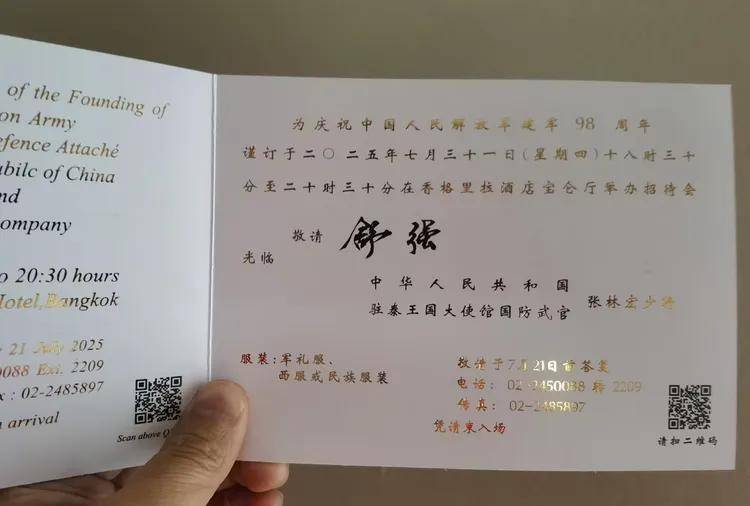 of the Founding of
on Army
efence Attaché
epubilc of China
nd
ompany
o 20:30 hours
Hotel,Bangkok
y 21 July 2025
0088 Ext. 2209
x : 02-2485897
n arrival
Scan above Q
为庆祝中国人民解放军建军 98 周年
谨订于二〇二五年七月三十一日(星期四)十八时三十
分至二十时三十分在香格里拉酒店宝仑厅举办招待会
敬请 舒强
光临
中华人民共和国
驻泰王国大使馆国防武官 张林宏少将
服装:军礼服、
西服或民族服装
敬请于7月21日前答复
电话: 02-2450088 转 2209
传真: 02-2485897
凭请柬入场
请扫二维码